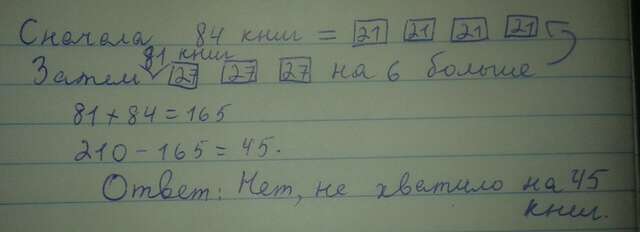 Сначала 84 книг = 21 21 21 21
81 книг
Затем 27 27 27 на 6 больше
81 + 84 = 165
210 - 165 = 45.
Ответ: Нет, не хватило на 45
книг.